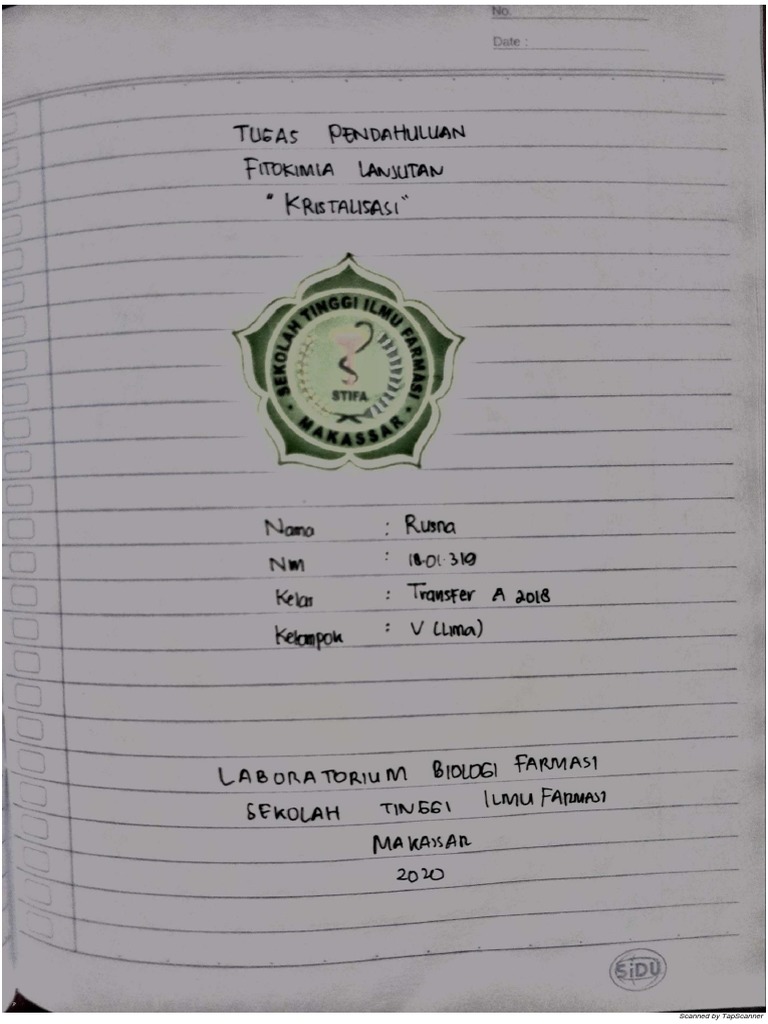 No.
Date :
TUGAS PENDAHULUAN
FITOKIMIA LANJUTAN
"KRISTALISASI"
SEKOLAH TINGGI ILMU FARMASI
STIFA
MAKASSAR
Nama : Rusna
Nim : 18.01.319
Kelas : Transfer A 2018
Kelompok : V (Lima)
LABORATORIUM BIOLOGI FARMASI
SEKOLAH TINGGI ILMU FARMASI
MAKASSAR
2020
SiDU
Scanned by TapScanner